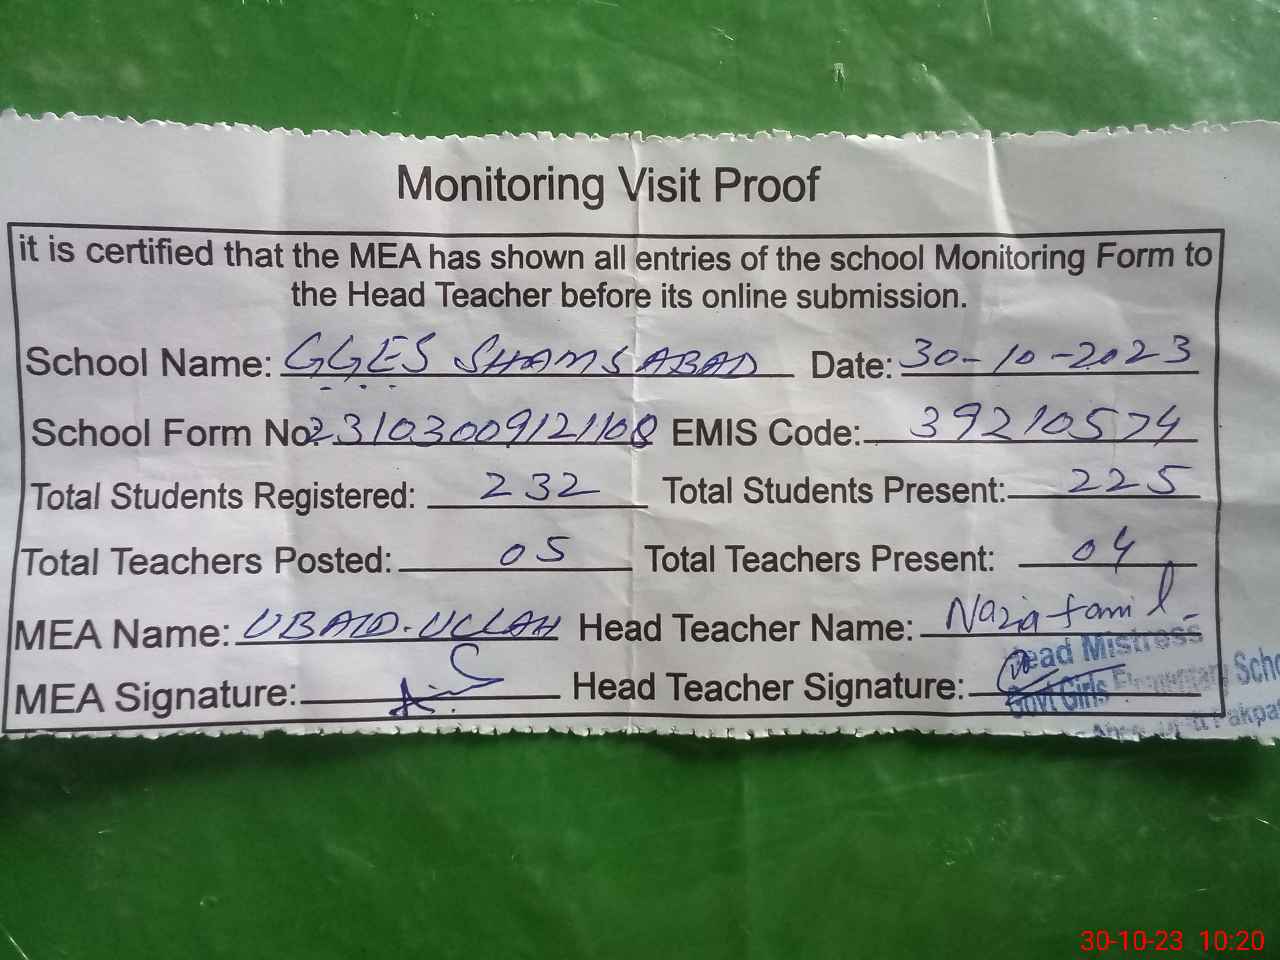 Monitoring Visit Proof
it is certified that the MEA has shown all entries of the school Monitoring Form to
the Head Teacher before its online submission.
School Name: GGES SHAMSABAD Date: 30-10-2023
School Form No: 23103009121108 EMIS Code: 39210574
Total Students Registered: 232 Total Students Present: 225
Total Teachers Posted: 05 Total Teachers Present: 04
MEA Name: UBAID-ULLAH Head Teacher Name: Nazia Jamil
MEA Signature: Head Teacher Signature:
Head Mistress
Govt Girls Elementary Scho
akpa
30-10-23 10:20